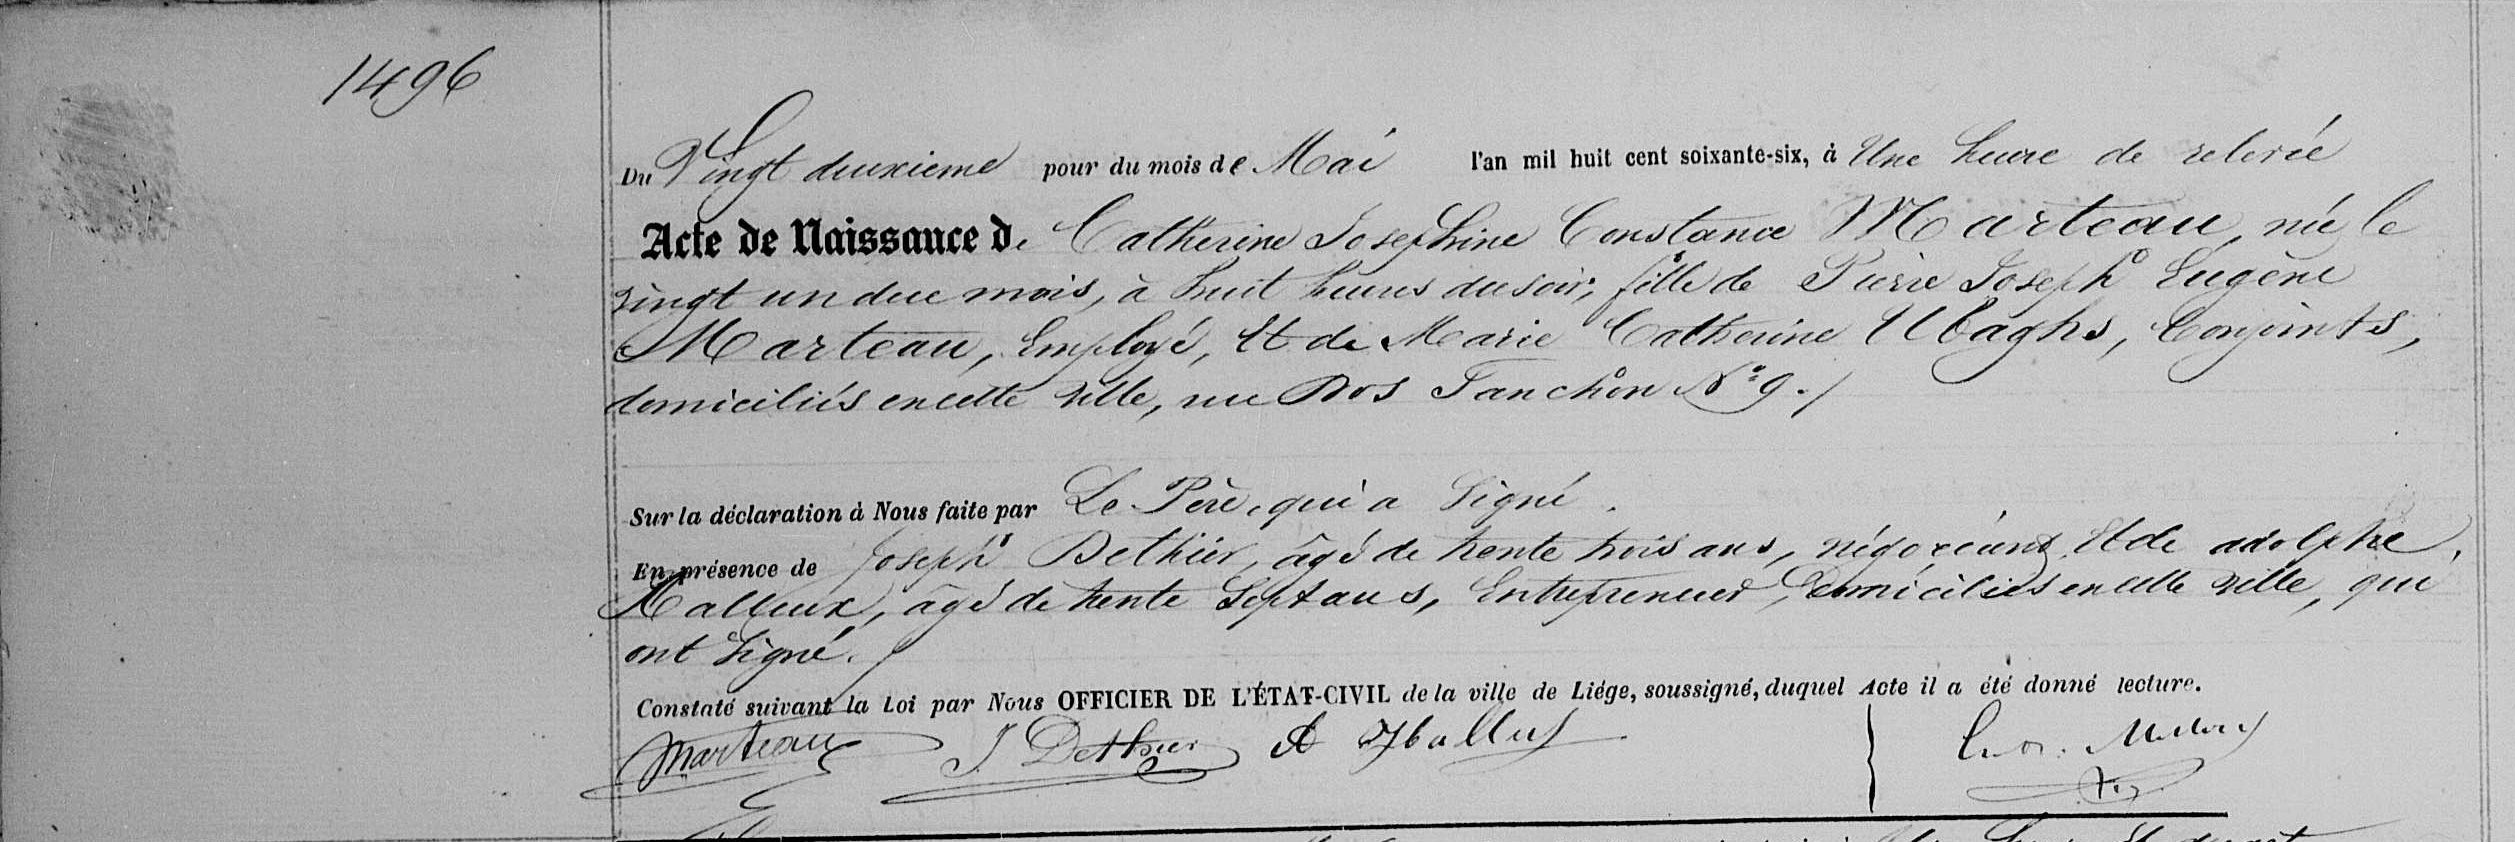 1496
Du Vingt deuxieme pour du mois de Mai l'an mil huit cent soixante-six, à Une heure de relevée
Acte de Naissance de Catherine Josephine Constance Marteau, née le
vingt un due mois, à huit heures du soir, fille de Pierre Joseph Eugène
Marteau, Employé, Et de Marie Catherine Ubaghs, Conjoints,
domiciliés en cette ville, rue Dos Fanchon N° 9./
Sur la déclaration à Nous faite par Le Père, qui a Signé.
En présence de Joseph Dethier, âgé de trente trois ans, négociant, Et de adolphe
Halleux, âgé de trente Sept ans, Entrepreneur, Domiciliés en cette ville, qui
ont Signé./
Constaté suivant la Loi par Nous OFFICIER DE L'ÉTAT-CIVIL de la ville de Liége, soussigné, duquel Acte il a été donné lecture.
Marteau J Dethier A Halleux